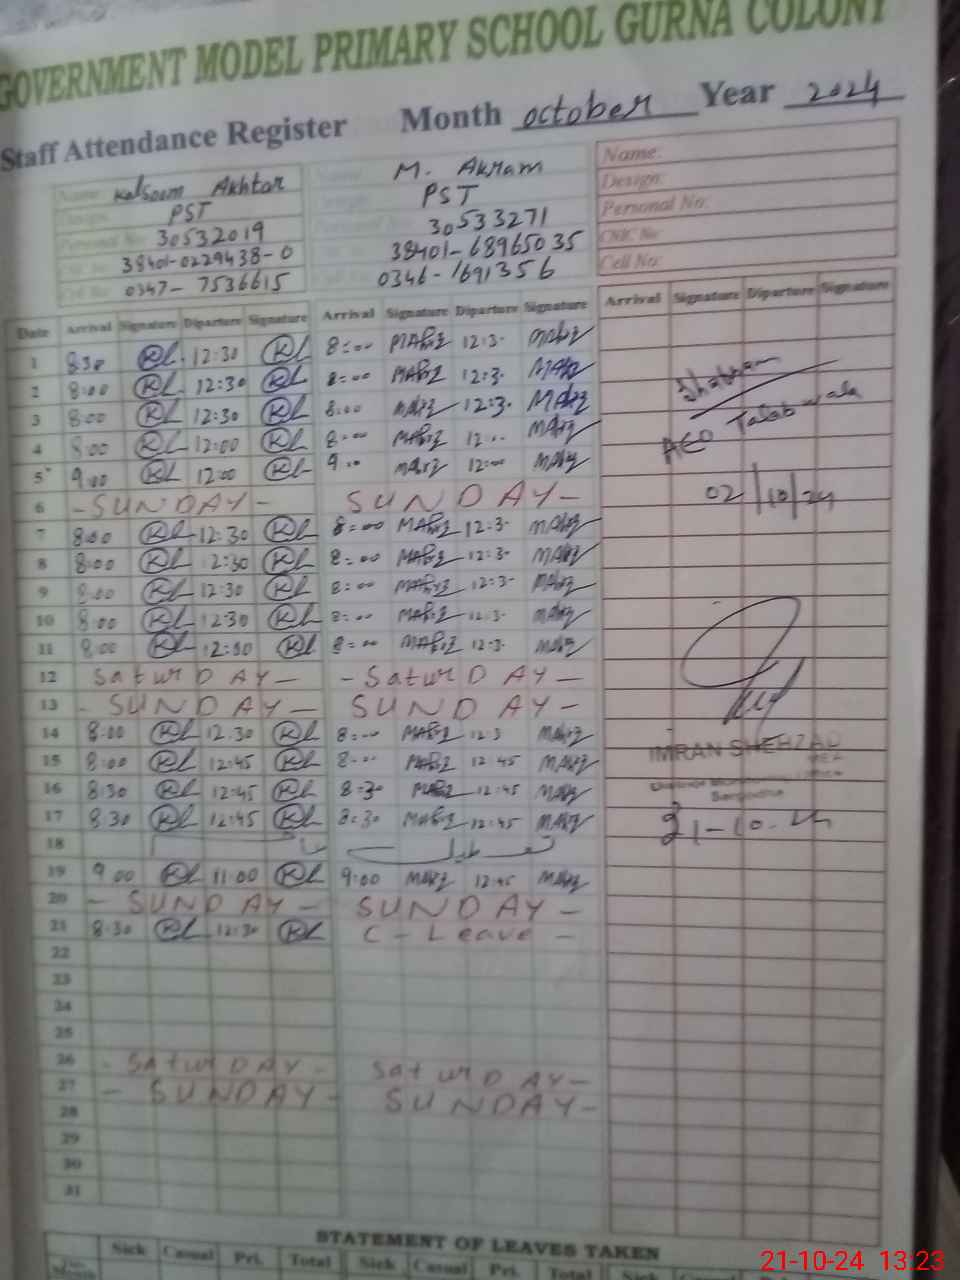 GOVERNMENT MODEL PRIMARY SCHOOL GURNA COLONY
Staff Attendance Register Month October Year 2024
Name: Kalsoom Akhtar M. Akram Name:
PST PST Design:
Personal No: 30532019 30533271 Personal No:
38401-0229438-0 38401-6896503 5 CNIC No:
Cell No: 0347-7536615 0346-1691356 Cell No:
Date Arrival Signature Diparture Signature Arrival Signature Diparture Signature Arrival Signature Diparture Signature
1 8:30 KL 12:30 KL 8:00 12:3-
2 8:00 KL 12:30 KL 8:00 12:3-
3 8:00 KL 12:30 KL 8:00 12:3-
4 8:00 KL 12:00 KL 8:00 12:--
5 9:00 KL 12:00 KL 9:00 12:00
6 -SUNDAY- SUNDAY-
7 8:00 KL 12:30 KL 8:00 12:3-
8 8:00 KL 12:30 KL 8:00 12:3-
9 8:00 KL 12:30 KL 8:00 12:3-
10 8:00 KL 12:30 KL 8:00 12:3-
11 8:00 KL 12:00 KL 8:00 12:3-
12 SaturDAY- -SaturDAY-
13 -SUNDAY- SUNDAY-
14 8:00 KL 12:30 KL 8:00 12:3
15 8:00 KL 12:45 KL 8:-- 12:45
16 8:30 KL 12:45 KL 8:30 12:45
17 8:30 KL 12:45 KL 8:30 12:45
18 تعطیل
19 9:00 KL 11:00 KL 9:00 12:45
20 -SUNDAY- SUNDAY-
21 8:30 KL 12:30 KL C-Leave-
22
23
24
25
26 -SaturDAY- SaturDAY-
27 -SUNDAY- SUNDAY-
28
29
30
31
Shabnam
AEO Talabwala
02/10/24
IMRAN SHEHZAD
MEA
Sargodha
21-10-24
STATEMENT OF LEAVES TAKEN
Sick Casual Pri. Total Sick Casual Pri. Total Sick Casual Pri. Total
21-10-24 13:23